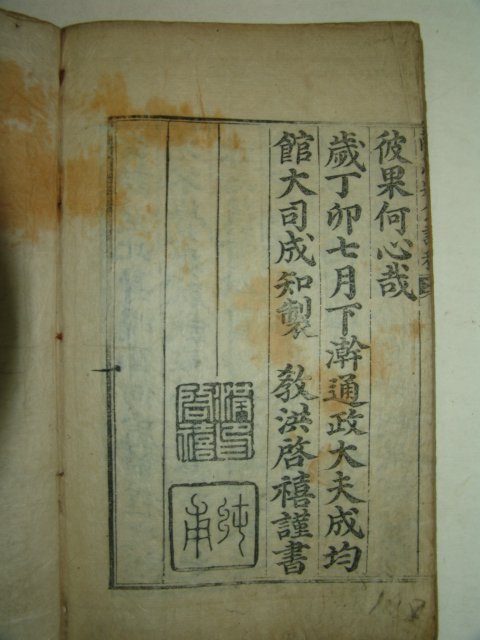 彼果何心哉
歲丁卯七月下澣通政大夫成均
館大司成知製 敎洪啓禧謹書
啓禧
純甫